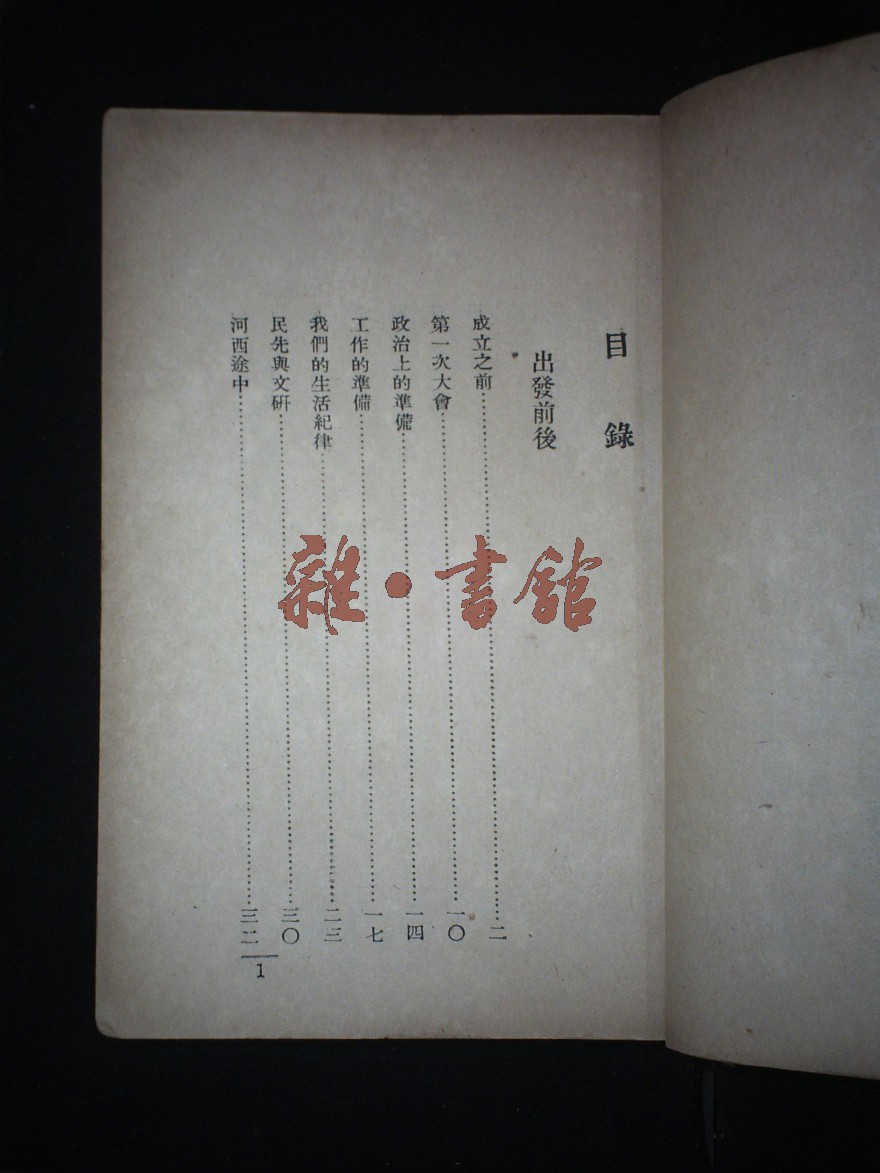 目錄
出發前後
成立之前……二
第一次大會……一〇
政治上的準備……一四
工作的準備……一七
我們的生活紀律……二三
民先與文硏……三〇
河西途中……三二
1
雜·書館